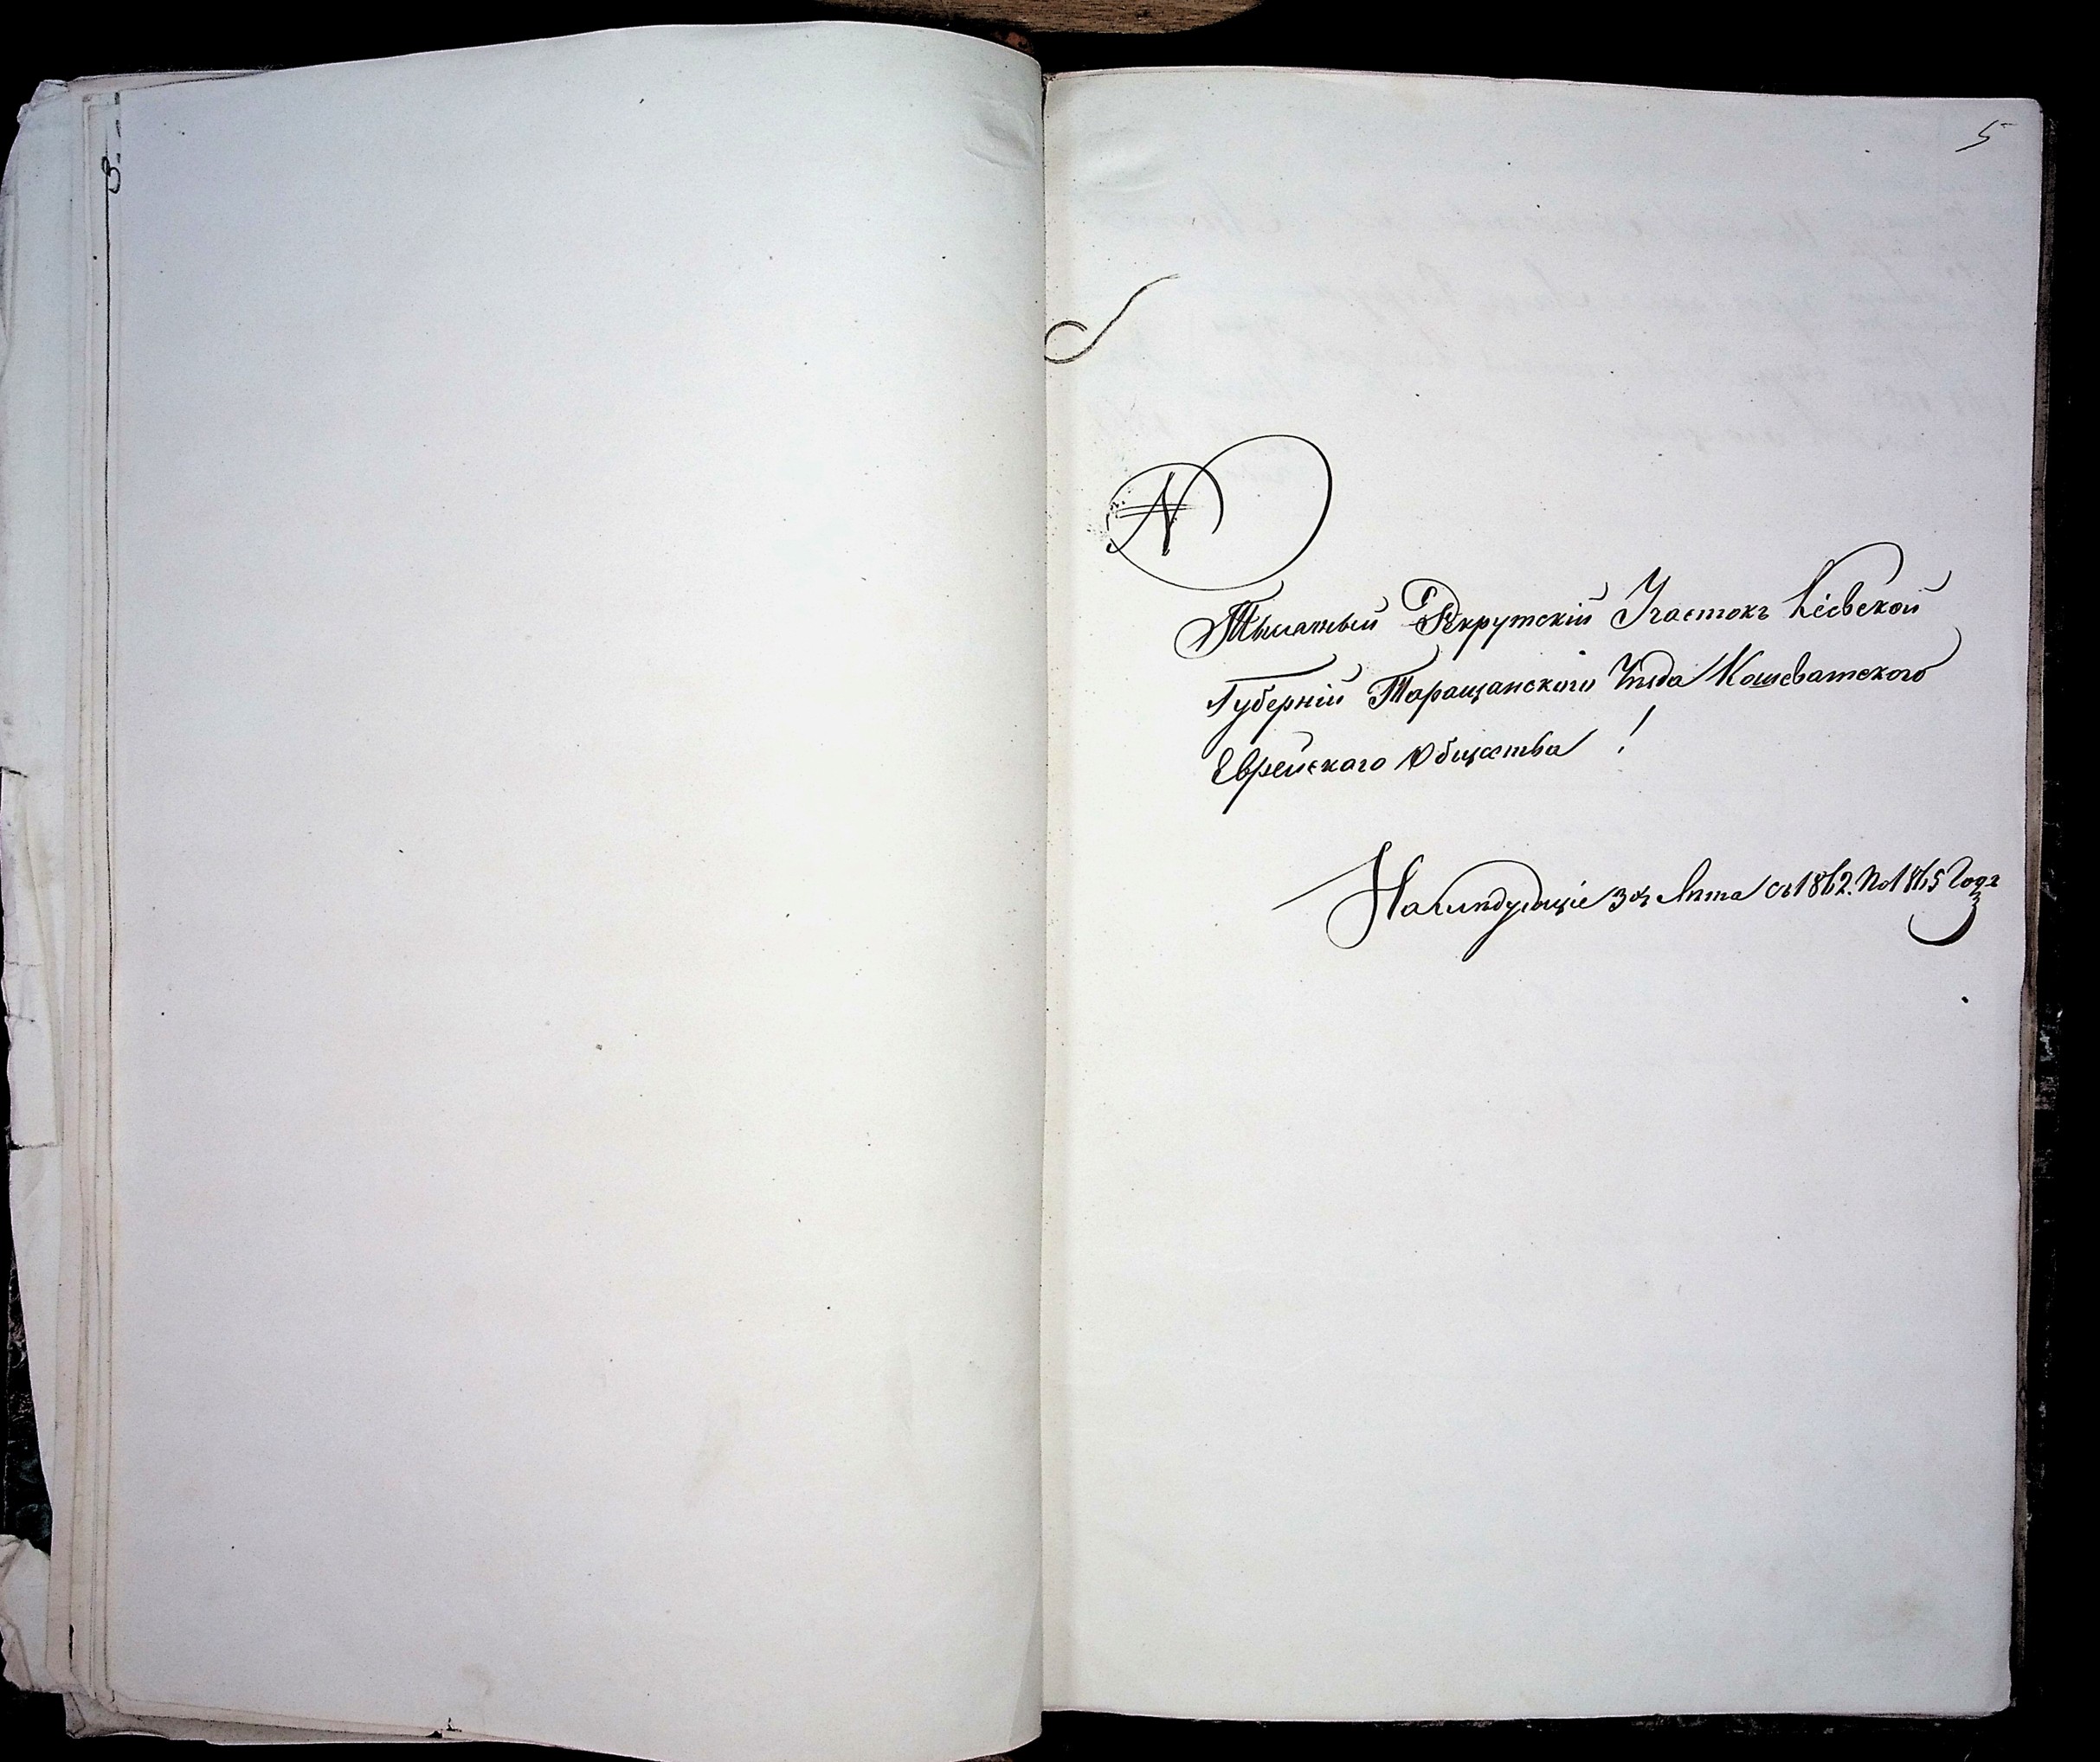 5
№
Тысячный Рекрутскій Участокъ Кіевской
Губерніи Таращанскаго Уѣзда Кошеватского
Еврейскаго Общества !
На слѣдующіе 3 Лѣта съ 1862. по 1865 Годъ